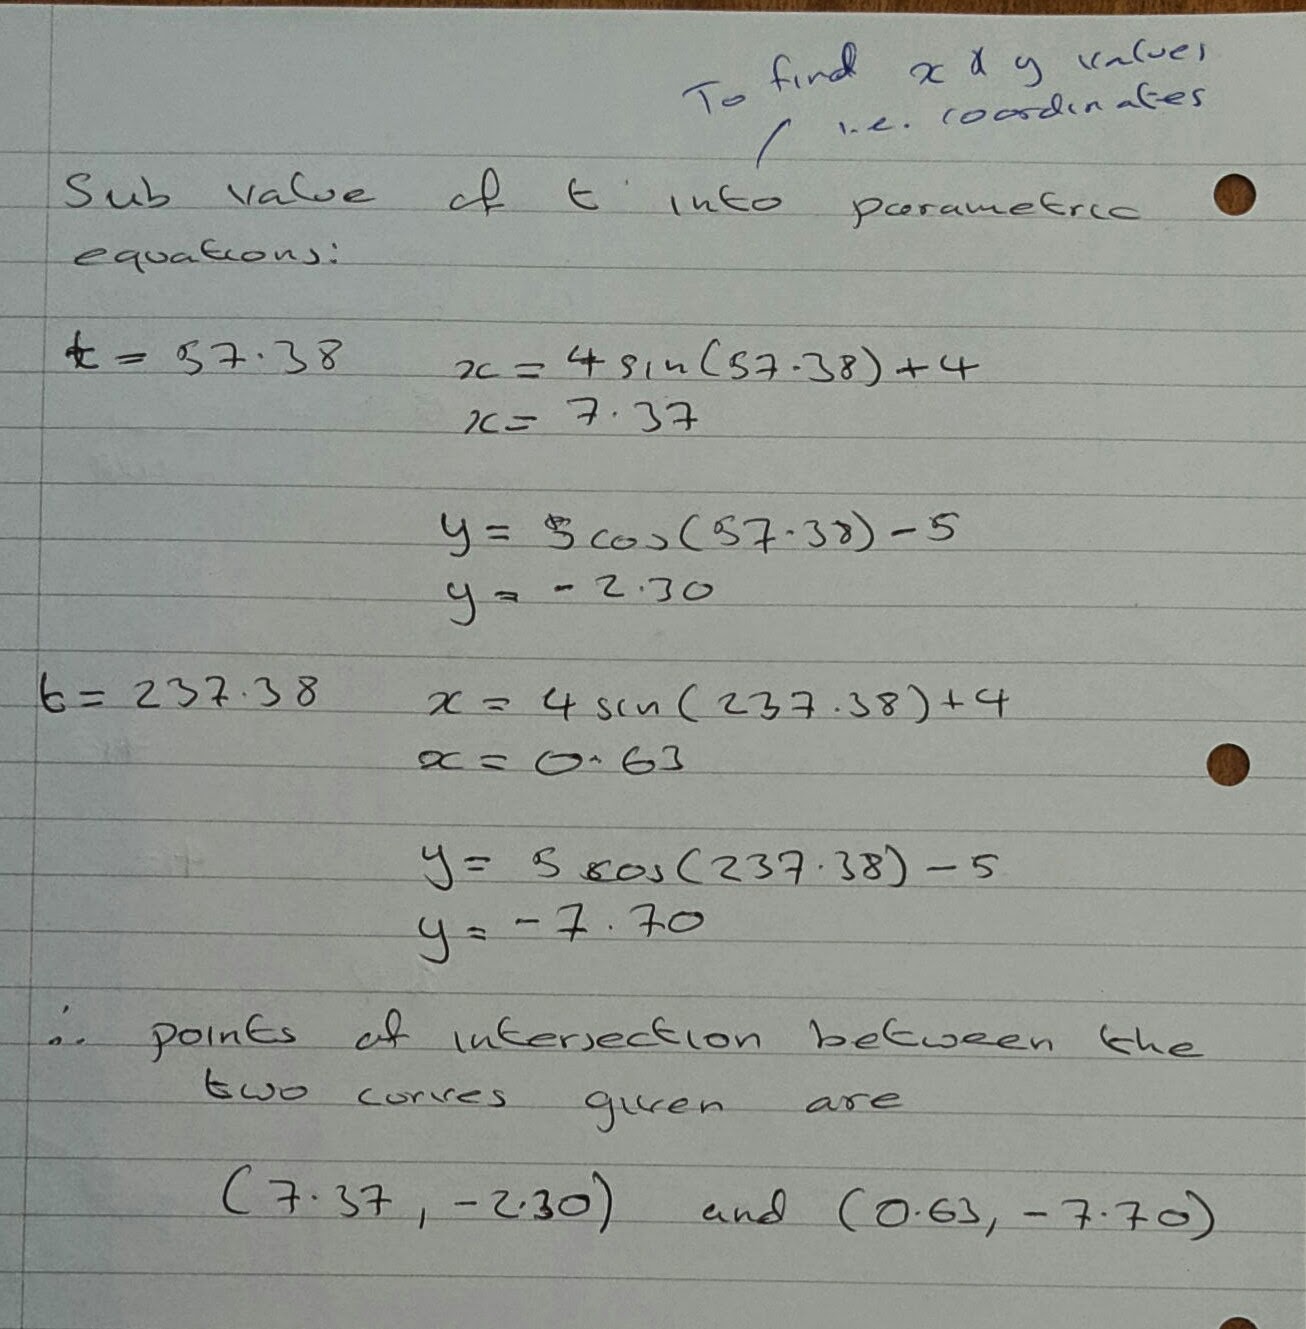 To find x & y values
i.e. coordinates
Sub value of t into parametric
equations:
t = 57.38 x = 4 sin(57.38) + 4
x = 7.37
y = 5 cos(57.38) - 5
y = - 2.30
t = 237.38 x = 4 sin(237.38) + 4
x = 0.63
y = 5 cos(237.38) - 5
y = - 7.70
∴ points of intersection between the
two curves given are
(7.37, -2.30) and (0.63, -7.70)